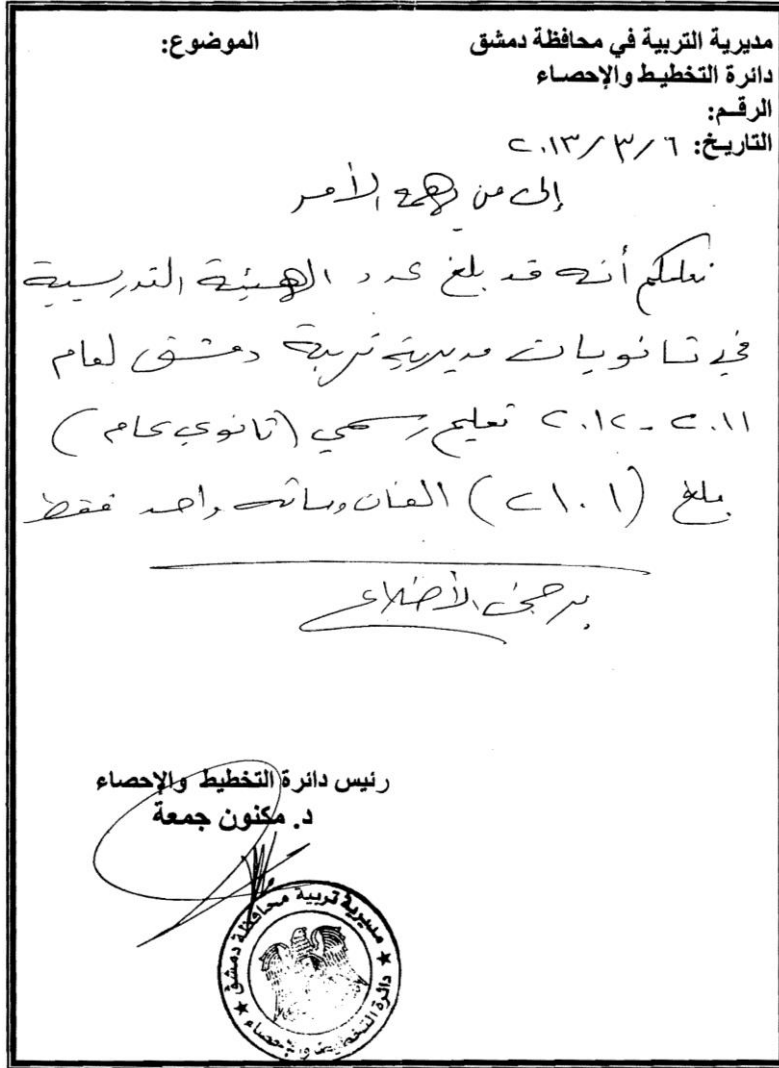 مديرية التربية في محافظة دمشق الموضوع:
دائرة التخطيط والإحصاء
الرقم:
التاريخ: ٢٠١٣/٣/٦
إلى من يهمه الأمر
نعلمكم أنه قد بلغ عدد الهيئة التدريسية
في ثانويات مديرية تربية دمشق لعام
٢٠١١ - ٢٠١٢ تعليم رسمي (ثانوي عام)
بلغ (٢١٠١) الفان ومائه واحد فقط
يرجى الأضلاع
رئيس دائرة التخطيط والإحصاء
د. مكنون جمعة
مديرية تربية محافظة دمشق
دائرة التخطيط والإحصاء